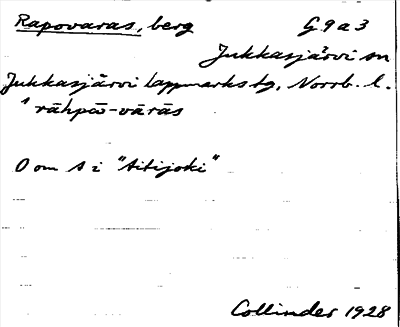 Rapovaras, berg G9a3
Jukkasjärvi sn
Jukkasjärvi lappmarks tg, Norrb. l.
rāhpω̄-vārās
O om s i "Aitijoki"
Collinder 1928